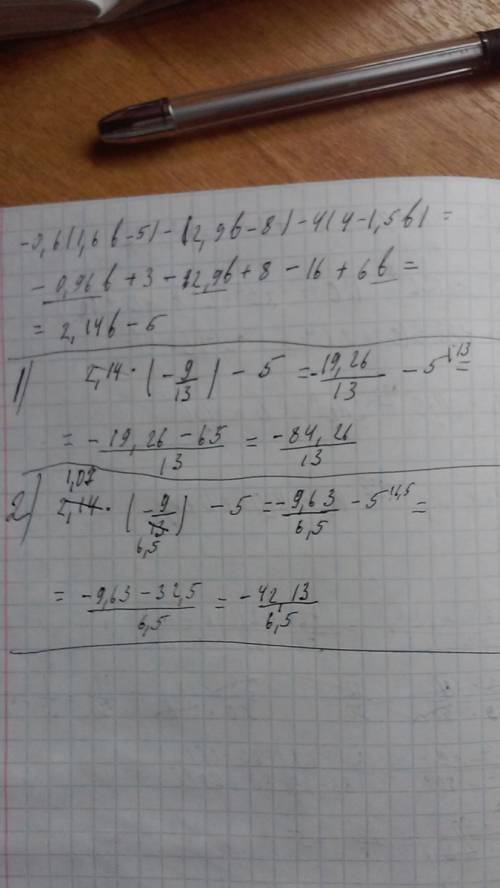 -0,6(1,6b-5)-(2,9b-8)-4(4-1,5b)=
-0,96b+3-2,9b+8-16+6b=
=2,14b-5
1) 2,14·(-9/13)-5=-19,26/13-5^{\13}=
=-19,26-65/13=-84,26/13
2) 1,07 2,14·(-9/13)-5=-9,63/6,5-5=
6,5
=-9,63-32,5/6,5=-42,13/6,5